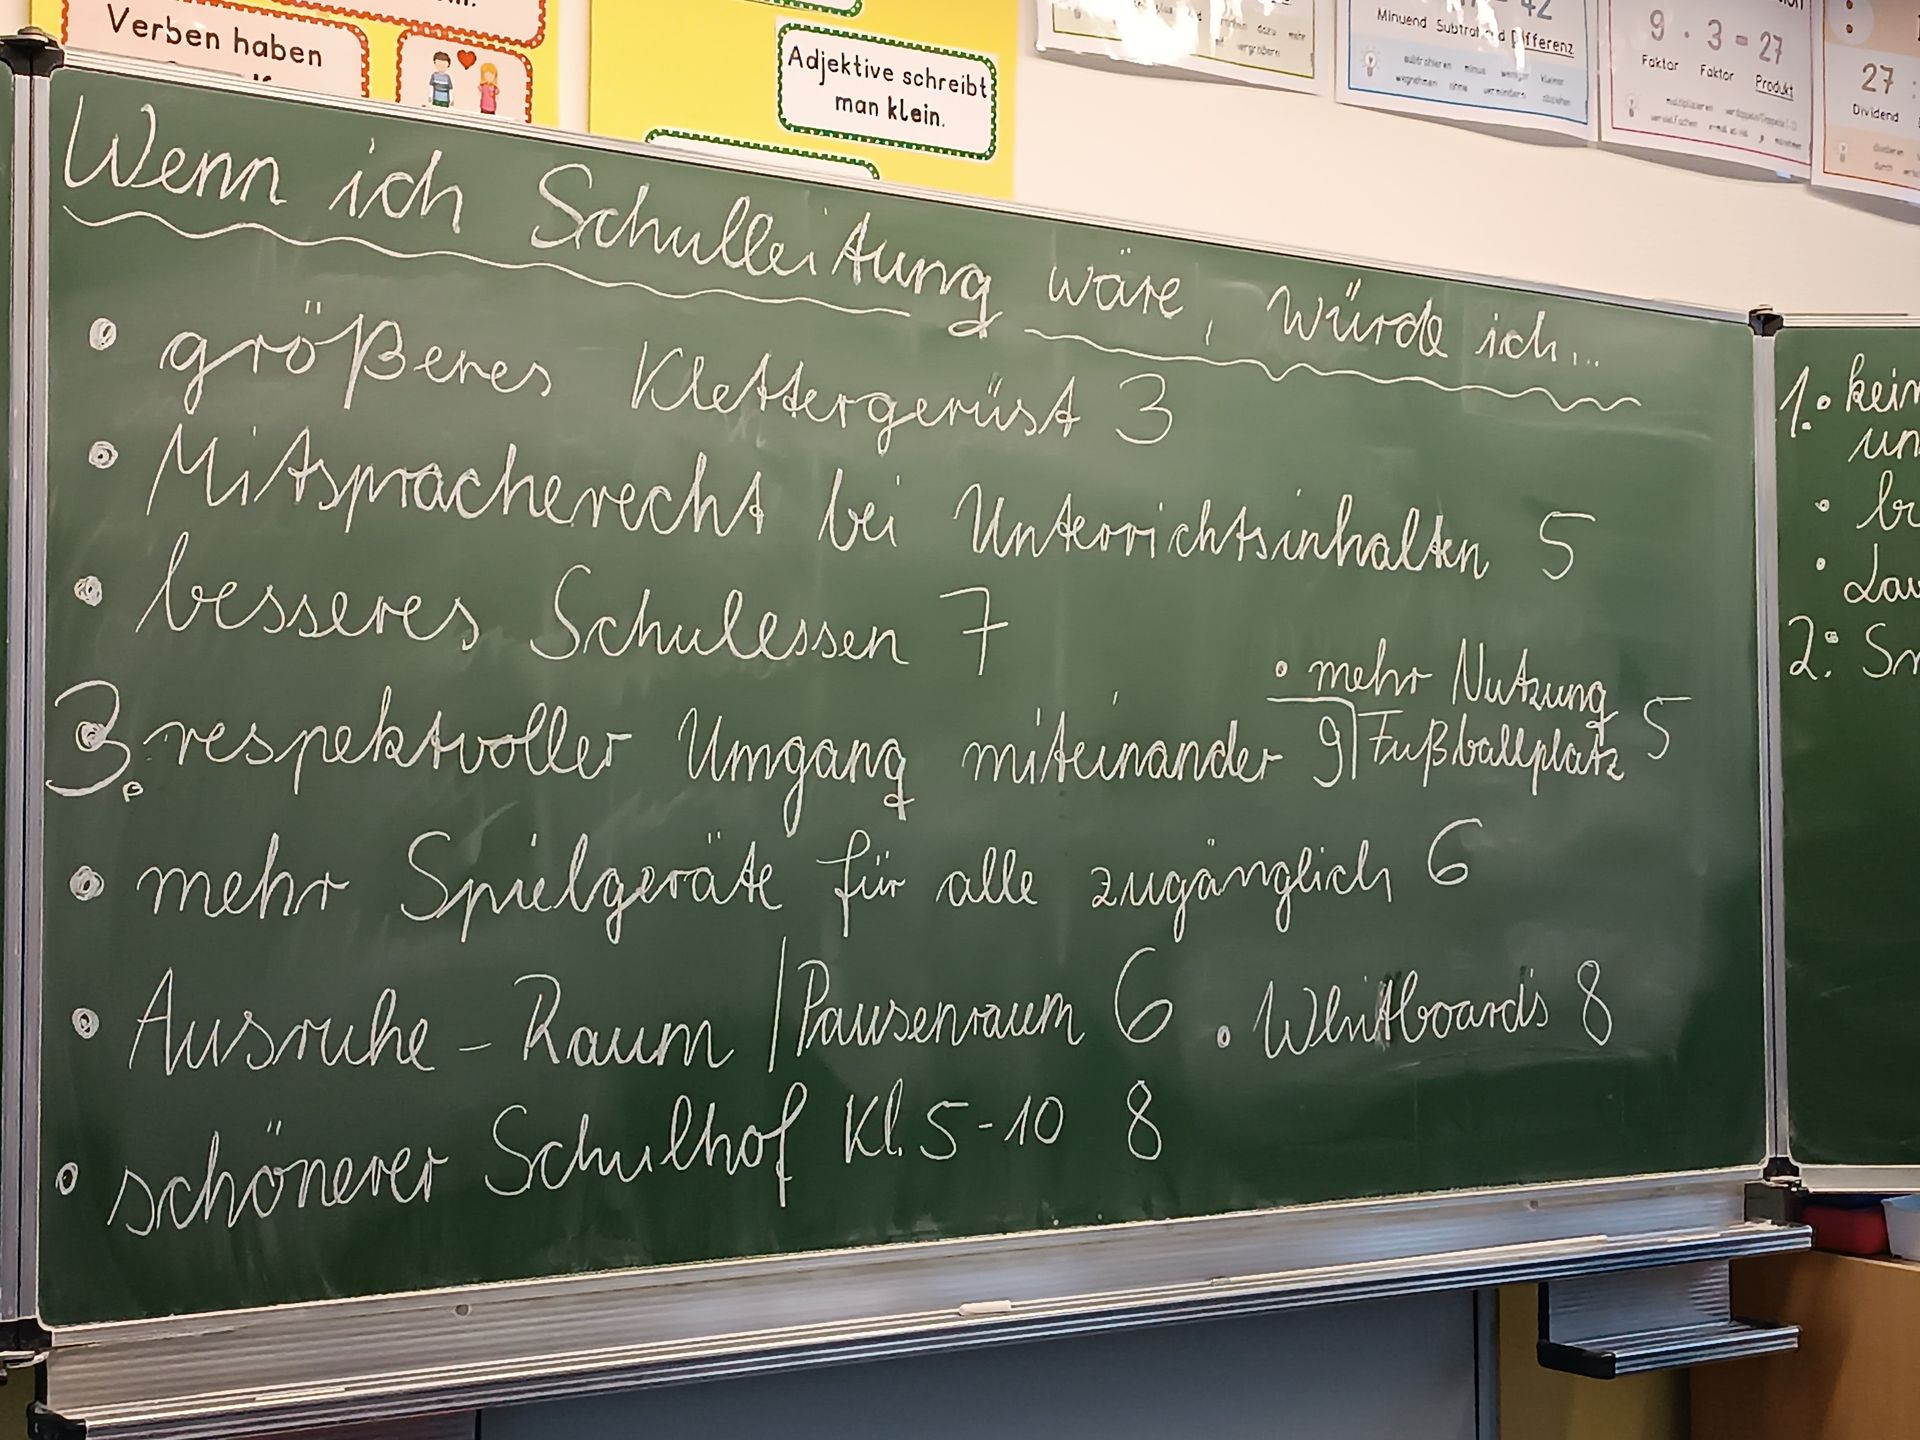 Verben haben
Adjektive schreibt
man klein.
Minuend Subtrahend Differenz
9 · 3 = 27
Faktor Faktor Produkt
27 :
Dividend
Wenn ich Schulleitung wäre, würde ich...
größeres Klettergerüst 3
Mitspracherecht bei Unterrichtsinhalten 5
besseres Schulessen 7
• mehr Nutzung
Fußballplatz 5
3. respektvoller Umgang miteinander 9
mehr Spielgeräte für alle zugänglich 6
Ausruhe-Raum / Pausenraum 6 • Whitboards 8
• schönerer Schulhof Kl. 5-10 8
1.
2.